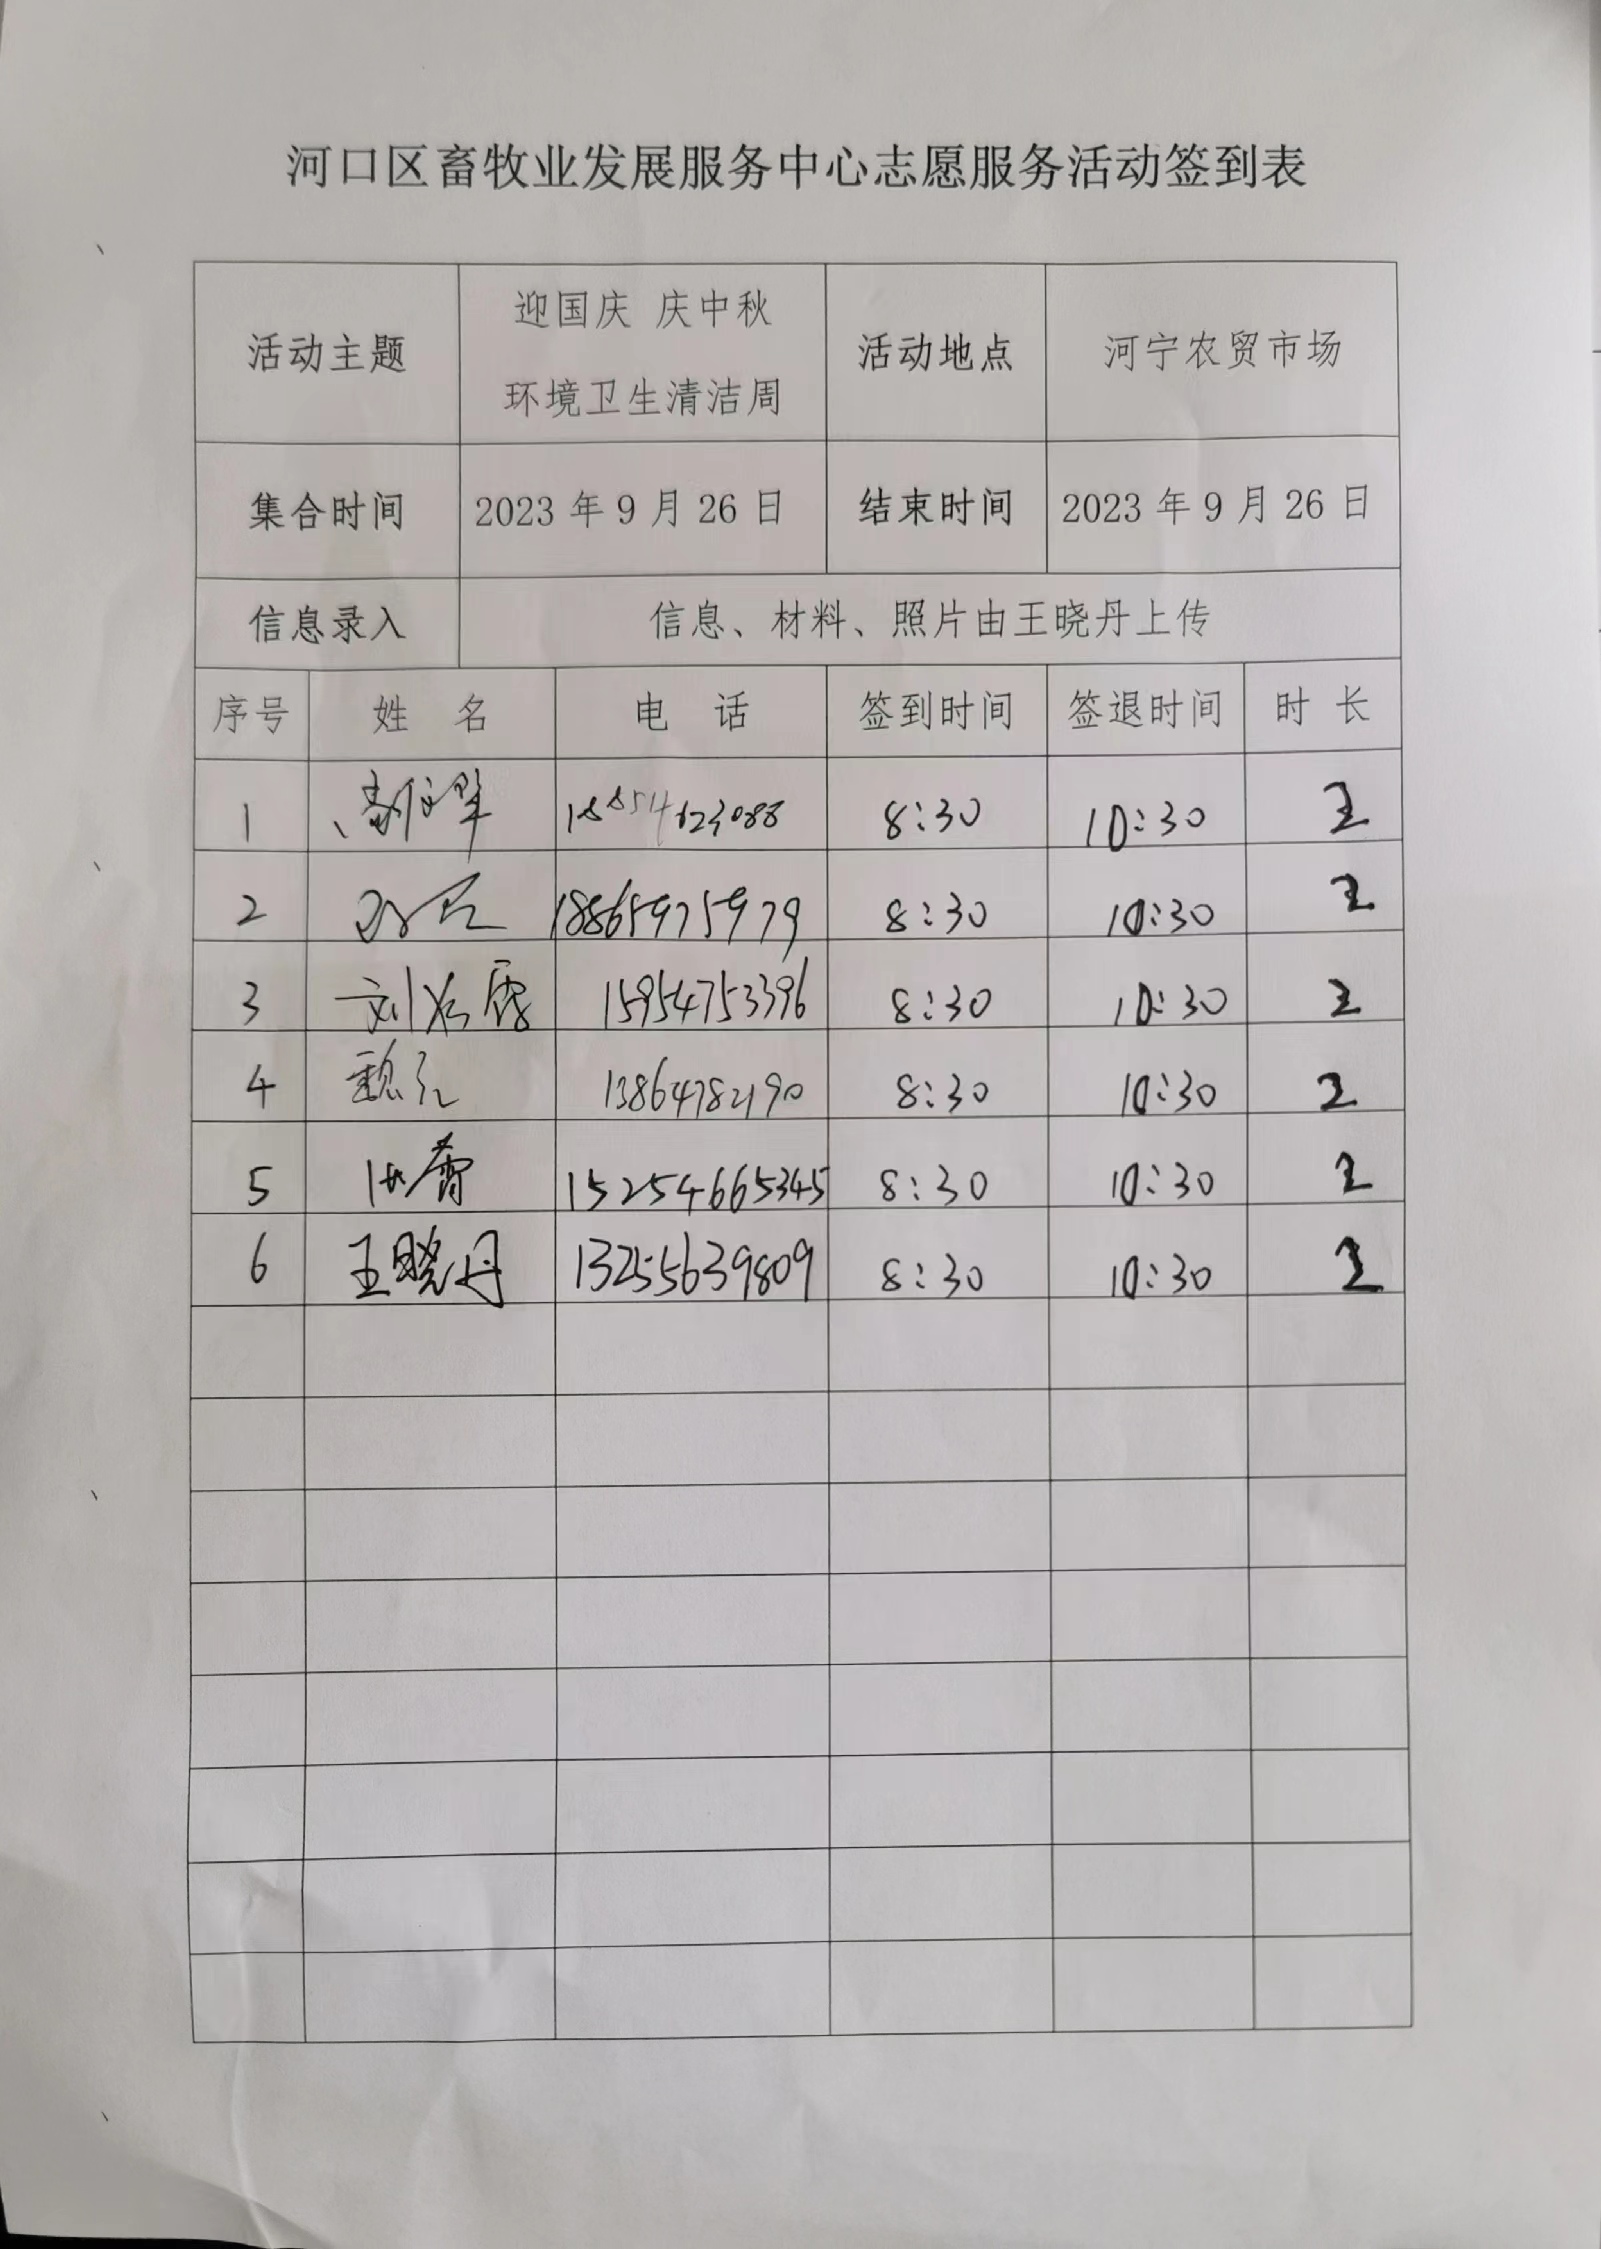 河口区畜牧业发展服务中心志愿服务活动签到表
活动主题 迎国庆 庆中秋 活动地点 河宁农贸市场
环境卫生清洁周
集合时间 2023年9月26日 结束时间 2023年9月26日
信息录入 信息、材料、照片由王晓丹上传
序号 姓 名 电 话 签到时间 签退时间 时 长
1 18854623088 8:30 10:30 2
2 18865975979 8:30 10:30 2
3 刘 霞 15954753396 8:30 10:30 2
4 魏 13864782190 8:30 10:30 2
5 蕾 15254665345 8:30 10:30 2
6 王晓丹 13255639809 8:30 10:30 2